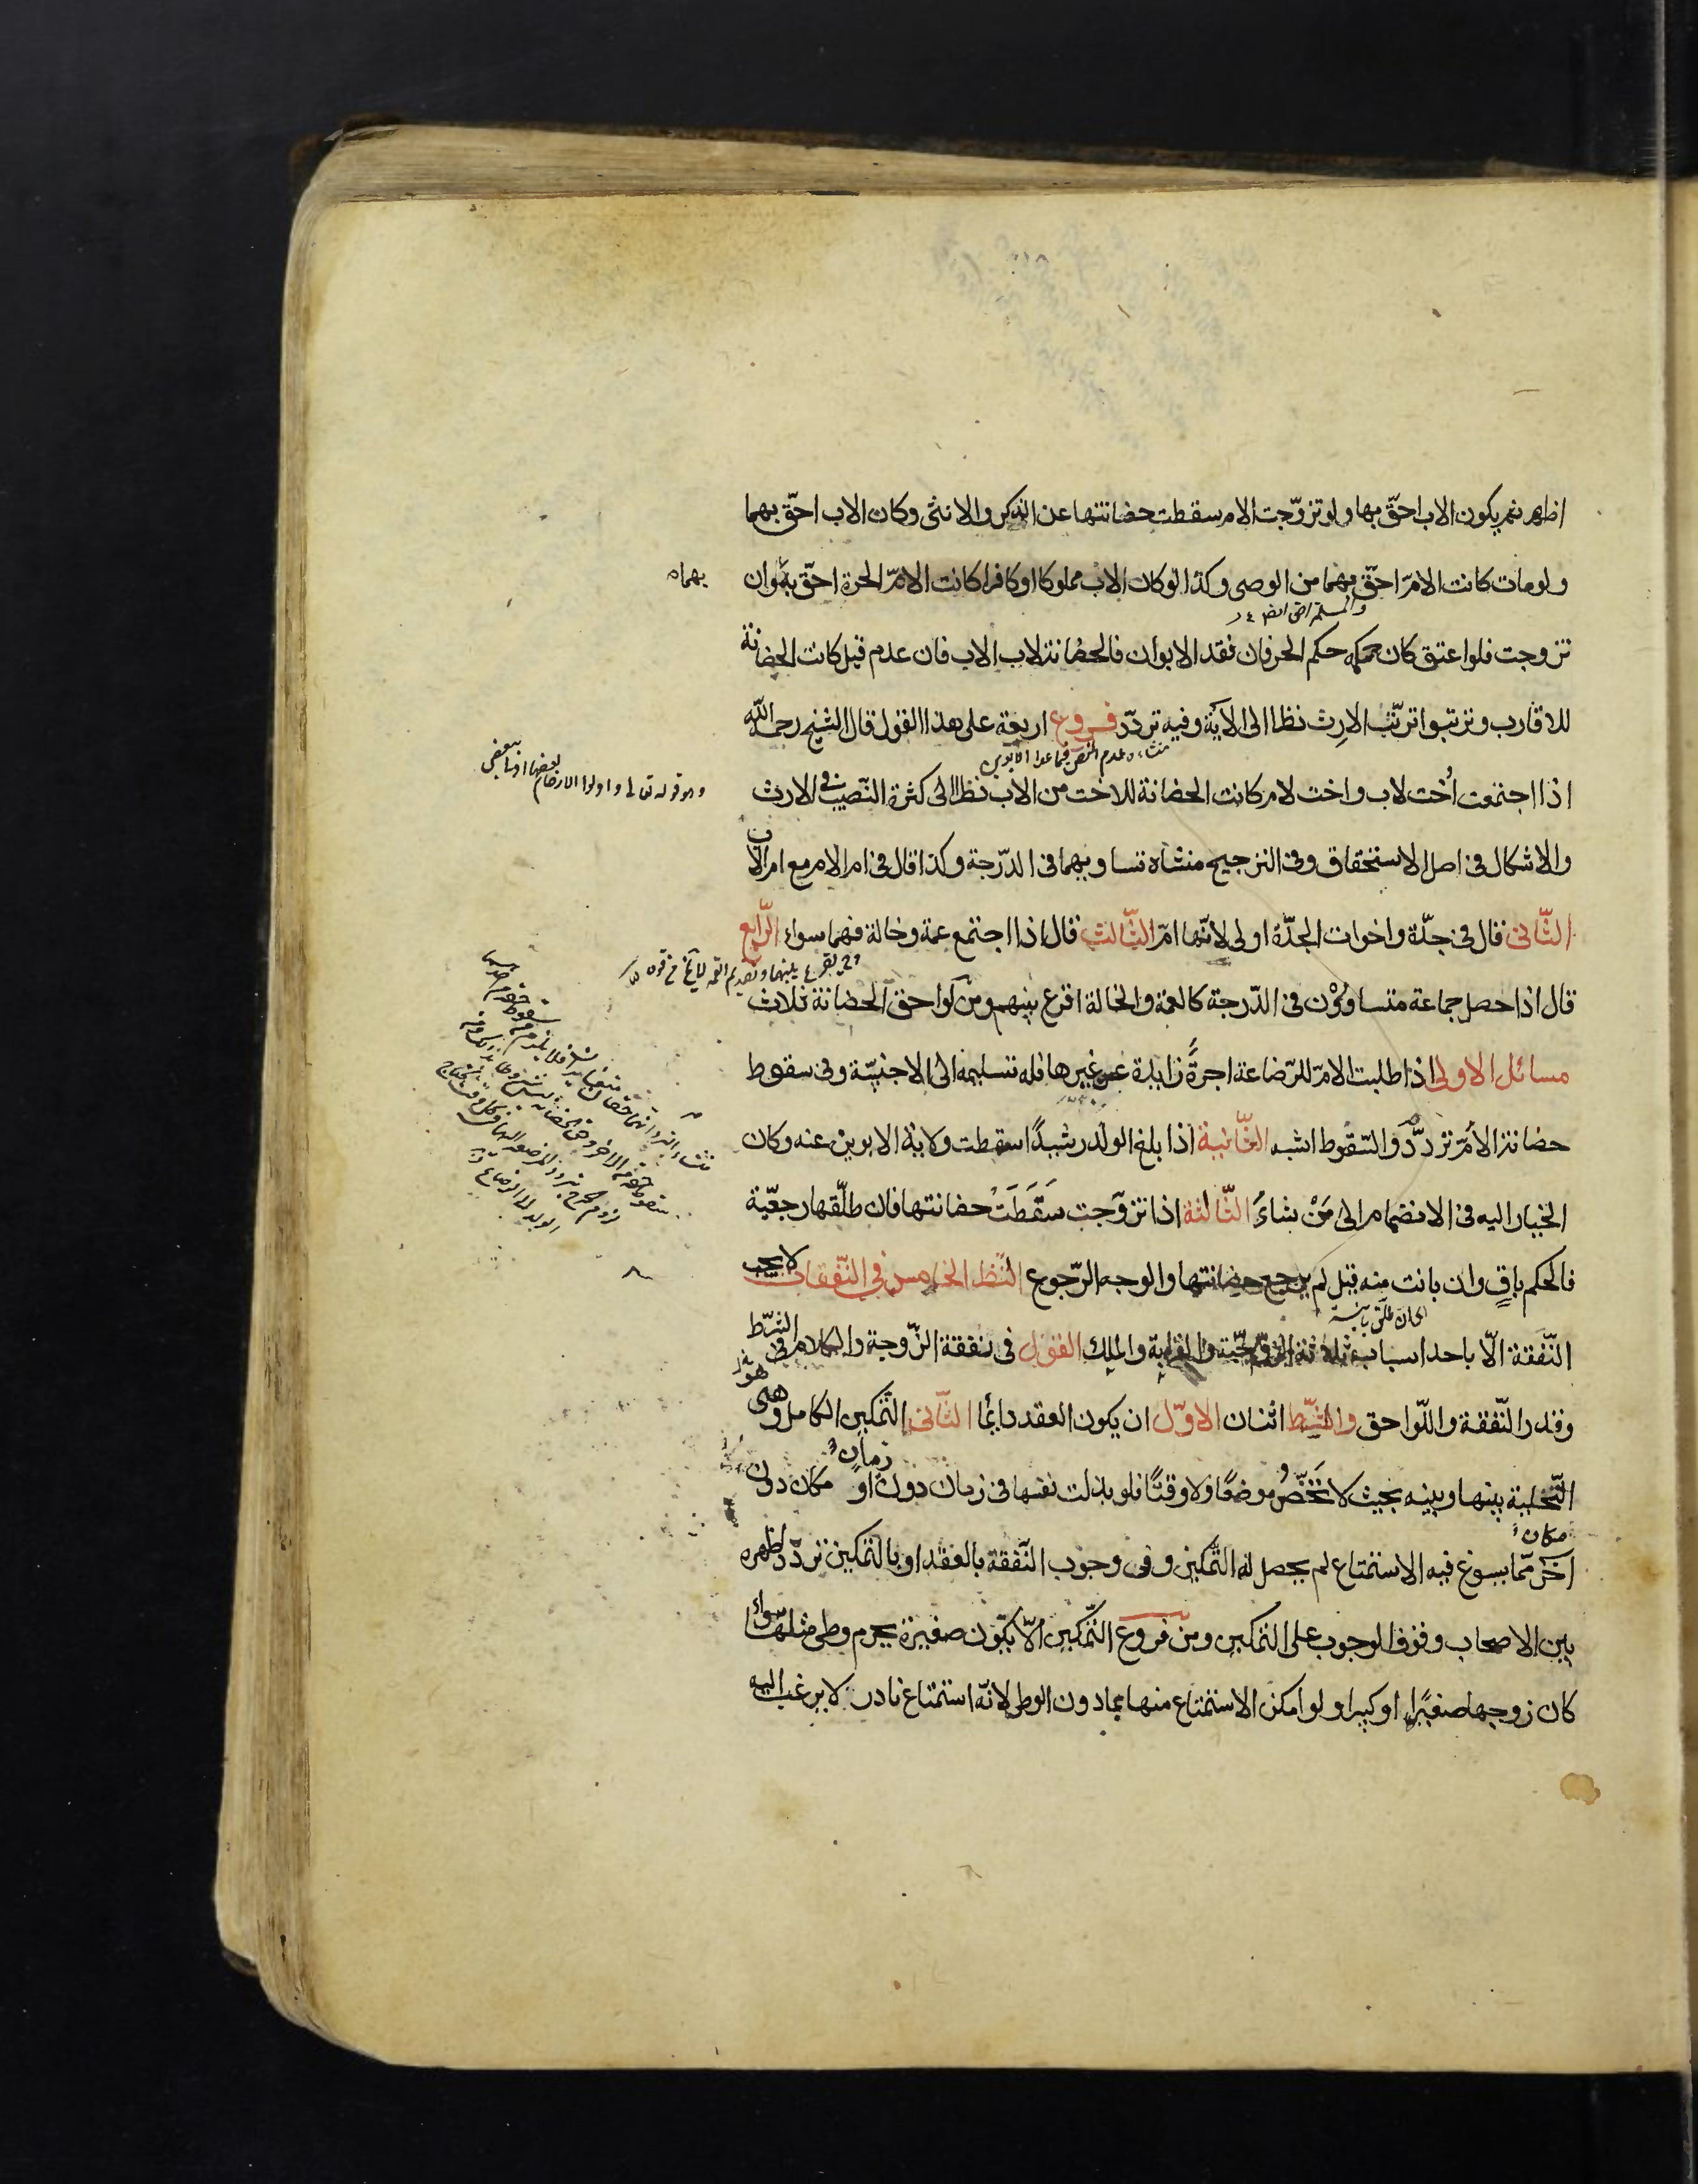 اظهر ثم يكون الاب احقّ بها ولو تزوّجت الام سقطت حضانتها عن الذكر والانثى وكان الاب احقّ بهما
ولو مات كانت الامّ احقّ بهما من الوصى وكذا لو كان الاب مملوكا او كافرا كانت الامّ الحرة احقّ به وان
بهما ه
تزوجت فلو اعتق كان حكمه حكم الحر فان فقد الابوان فالحضانة لاب الاب فان عدم قيل كانت الحضانة
للاقارب وترتبوا ترتّب الارث نظرا الى الآية وفيه تردّد فروع اربعة على هذا القول قال الشيخ رحمه الله
منشاءه عدم النص فيما عدا الابوين
اذا اجتمعت أخت لاب واخت لام كانت الحضانة للاخت من الاب نظرا الى كثرة النّصيب فى الارث
وهو قوله تعالى واولوا الارحام بعضها اولى ببعض
والاشكال فى اصل الاستحقاق وفى الترجيح منشاه تساويهما فى الدّرجة وكذا قال فى ام الام مع ام الاب
الثّانى قال فى جدّة واخوات الجدّة اولى لانّها امّ الثّالث قال اذا اجتمع عمة وخالة فهما سواء الرّابع
قال اذا حصل جماعة متساوون فى الدّرجة كالعمة والخالة اقرع بينهم ومن لواحق الحضانة ثلاث
مسائل الاولى اذا طلبت الامّ للرّضاعة اجرةً زايدة عن غيرها فله تسليمه الى الاجنبيّة وفى سقوط
حضانة الأمّ تردّد والسّقوط اشبه الثّانية اذا بلغ الولد رشيدًا سقطت ولاية الابوين عنه وكان
الخيار اليه فى الانضمام الى مَنْ شاءَ الثّالثة اذا تزوّجت سَقَطَتْ حضانتها فان طلّقها رجعيّة
فالحكم باقٍ وان بانت منه قيل لم يرجع حضانتها والوجه الرّجوع النّظر الخامس فى النّفقات لا يجب
النّفقة الّا باحد اسباب ثلاثة الزّوجيّة والقرابة والملك القول فى نفقة الزّوجة والكلام فى الشّرط
وقدر النّفقة واللّواحق والشّرط اثنان الاوّل ان يكون العقد دائما الثّانى التّمكين الكامل وهو
التّخلية بينها وبينه بحيث لا تخصّ موضعًا ولا وقتًا فلو بذلت نفسها فى زمان دون زمان او مكان دون
مكان
آخر ممّا يسوغ فيه الاستمتاع لم يحصل له التّمكين وفى وجوب النّفقة بالعقد او بالتمكين تردّد اظهره
بين الاصحاب وقوف الوجوب على التمكين ومن فروع التّمكين الّا تكون صغيرة يحرم وطى مثلها سواء
كان زوجها صغيرًا او كبيرا ولو امكن الاستمتاع منها بما دون الوطى لانّه استمتاع نادر لا يرغب اليه